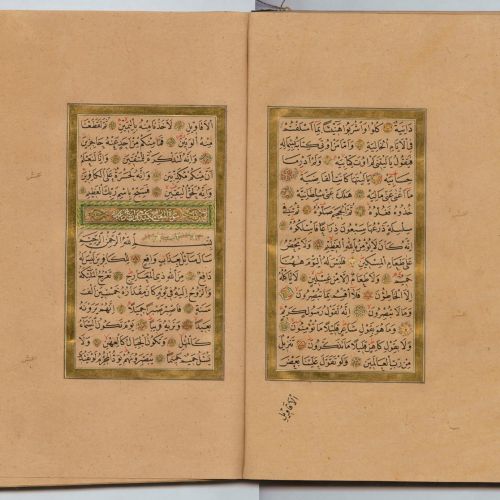 دَانِيَةٌ كُلُوا وَاشْرَبُوا هَنِيئًا بِمَا أَسْلَفْتُمْ
فِي الْأَيَّامِ الْخَالِيَةِ وَأَمَّا مَنْ أُوتِيَ كِتَابَهُ بِشِمَالِهِ
فَيَقُولُ يَا لَيْتَنِي لَمْ أُوتَ كِتَابِيَهْ وَلَمْ أَدْرِ مَا
حِسَابِيَهْ يَا لَيْتَهَا كَانَتِ الْقَاضِيَةَ
مَا أَغْنَى عَنِّي مَالِيَهْ هَلَكَ عَنِّي سُلْطَانِيَهْ
خُذُوهُ فَغُلُّوهُ ثُمَّ الْجَحِيمَ صَلُّوهُ ثُمَّ فِي
سِلْسِلَةٍ ذَرْعُهَا سَبْعُونَ ذِرَاعًا فَاسْلُكُوهُ
إِنَّهُ كَانَ لَا يُؤْمِنُ بِاللَّهِ الْعَظِيمِ وَلَا يَحُضُّ
عَلَى طَعَامِ الْمِسْكِينِ فَلَيْسَ لَهُ الْيَوْمَ هَهُنَا
حَمِيمٌ وَلَا طَعَامٌ إِلَّا مِنْ غِسْلِينٍ لَا يَأْكُلُهُ
إِلَّا الْخَاطِئُونَ فَلَا أُقْسِمُ بِمَا تُبْصِرُونَ
وَمَا لَا تُبْصِرُونَ إِنَّهُ لَقَوْلُ رَسُولٍ كَرِيمٍ
وَمَا هُوَ بِقَوْلِ شَاعِرٍ قَلِيلًا مَا تُؤْمِنُونَ
وَلَا بِقَوْلِ كَاهِنٍ قَلِيلًا مَا تَذَكَّرُونَ تَنْزِيلٌ
مِنْ رَبِّ الْعَالَمِينَ وَلَوْ تَقَوَّلَ عَلَيْنَا بَعْضَ
الاقاويل
الْأَقَاوِيلِ لَأَخَذْنَا مِنْهُ بِالْيَمِينِ ثُمَّ لَقَطَعْنَا
مِنْهُ الْوَتِينَ فَمَا مِنْكُمْ مِنْ أَحَدٍ عَنْهُ حَاجِزِينَ
وَإِنَّهُ لَتَذْكِرَةٌ لِلْمُتَّقِينَ وَإِنَّا لَنَعْلَمُ
أَنَّ مِنْكُمْ مُكَذِّبِينَ وَإِنَّهُ لَحَسْرَةٌ عَلَى الْكَافِرِينَ
وَإِنَّهُ لَحَقُّ الْيَقِينِ فَسَبِّحْ بِاسْمِ رَبِّكَ الْعَظِيمِ
بِسْمِ اللَّهِ الرَّحْمَنِ الرَّحِيمِ
سَأَلَ سَائِلٌ بِعَذَابٍ وَاقِعٍ لِلْكَافِرِينَ لَيْسَ لَهُ
دَافِعٌ مِنَ اللَّهِ ذِي الْمَعَارِجِ تَعْرُجُ الْمَلَائِكَةُ
وَالرُّوحُ إِلَيْهِ فِي يَوْمٍ كَانَ مِقْدَارُهُ خَمْسِينَ أَلْفَ
سَنَةٍ فَاصْبِرْ صَبْرًا جَمِيلًا إِنَّهُمْ يَرَوْنَهُ
بَعِيدًا وَنَرَاهُ قَرِيبًا يَوْمَ تَكُونُ السَّمَاءُ
كَالْمُهْلِ وَتَكُونُ الْجِبَالُ كَالْعِهْنِ وَلَا
يَسْأَلُ حَمِيمٌ حَمِيمًا يُبَصَّرُونَهُمْ يَوَدُّ الْمُجْرِمُ لَوْ يَفْتَدِي